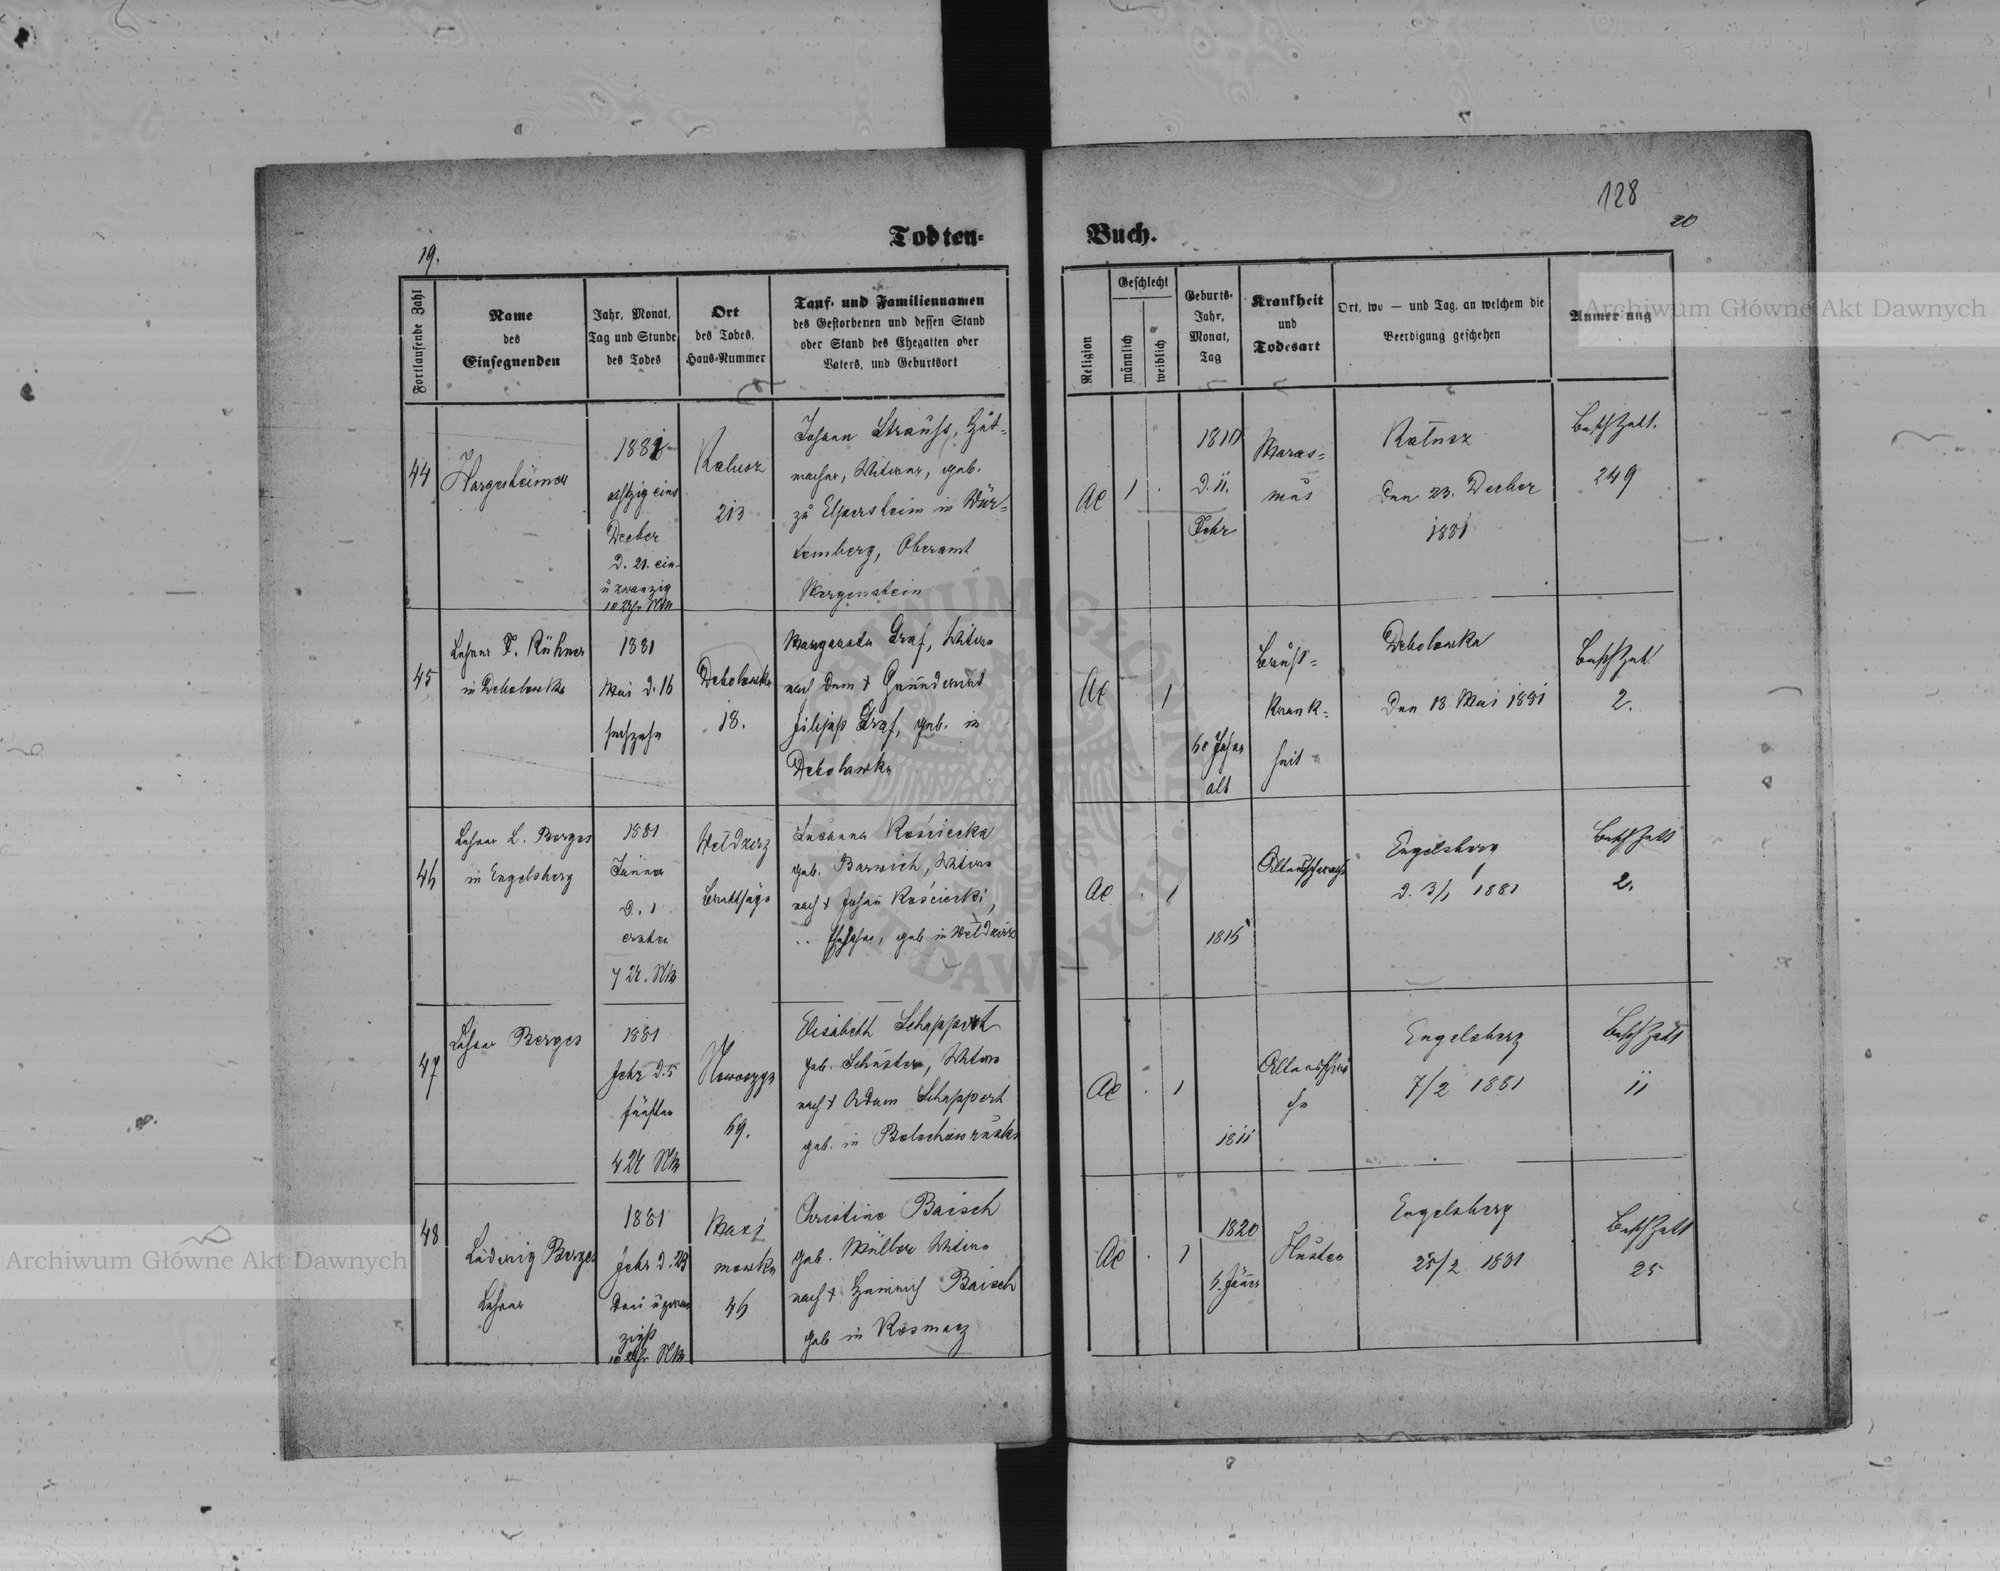 128
19.
20
Todten-
Buch.
Fortlaufende Zahl
Name
des
Einsegnenden
Jahr, Monat,
Tag und Stunde
des Todes
Ort
des Todes,
Haus-Nummer
Tauf- und Familiennamen
des Gestorbenen und dessen Stand
oder Stand des Ehegatten oder
Vaters, und Geburtsort
Religion
Geschlecht
männlich
weiblich
Geburts-
Jahr,
Monat,
Tag
Krankheit
und
Todesart
Ort, wo — und Tag, an welchem die
Beerdigung geschehen
Anmer ung
44
Hargesheimer
1881
achtzig eins
Decber
d. 21. ein
u zwanzig
10 Uhr
Kalusz
213
Johann Strauss, Hut-
macher, Witwer, geb.
zu Elpersheim in Wür-
temberg, Oberamt
Mergenstein
AC
1
1810
d. 11.
Febr
Maras-
mus
Kałusz
den 23. Decber
1881
249
45
Lehrer F. Kühner
in Debolowka
1881
Mai d. 16
sechzehn
Debolowka
18.
Margareta Graf, Witwe
nach dem † Grundwirt
Filipp Graf, geb. in
Debolowka
AC
1
60 Jahre
alt
Brust-
krank-
heit
Debolowka
den 18. Mai 1881
2.
46
Lehrer L. Berges
in Engelsberg
1881
Jänner
d. 1
ersten
7 Uhr
Wełdzirz
Brettsäge
Susanna Kościecka
geb. Barwich, Witwe
nach † Johan Kościecki,
geb. in Wełdzirz
AC
1
1815
Altersschwach
Engelsberg
d. 3/1 1881
2.
47
Lehrer Berges
1881
Febr d. 5
fünften
4 Uhr
Nowoszyn
69.
Elisabeth Schappert
geb. Schuster, Witwe
nach † Adam Schappert
geb. in
AC
1
1811
Engelsberg
7/2 1881
11
48
Ludwig Berges
Lehrer
1881
Febr d. 23
drei u zwan
zigst
10 Uhr
Maxj
mowka
46
Christine Baisch
geb. Müller Witwe
nach † Heinrich Baisch
geb in Rosmarz
AC
1
1820
6. Jänner
Husten
Engelsberg
25/2 1881
25
Archiwum Główne Akt Dawnych
Archiwum Główne Akt Dawnych
ARCHIWUM GŁÓWNE AKT DAWNYCH